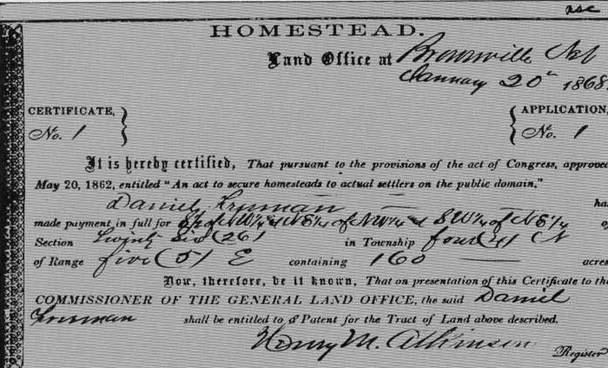 HOMESTEAD.
Land Office at Brownville Neb
January 20th 1868.
CERTIFICATE, No. 1
APPLICATION, No. 1
It is hereby certified, That pursuant to the provisions of the act of Congress, approved
May 20, 1862, entitled "An act to secure homesteads to actual settlers on the public domain,"
Daniel Freeman ha
made payment in full for S½ of NW¼ & NE¼ of NW¼ & SW¼ of NE¼ o
Section Twenty Six (26) in Township four (4) N
of Range five (5) E containing 160 acres
Now, therefore, be it known, That on presentation of this Certificate to the
COMMISSIONER OF THE GENERAL LAND OFFICE, the said Daniel
Freeman shall be entitled to a Patent for the Tract of Land above described.
Henry M. Atkinson
Register